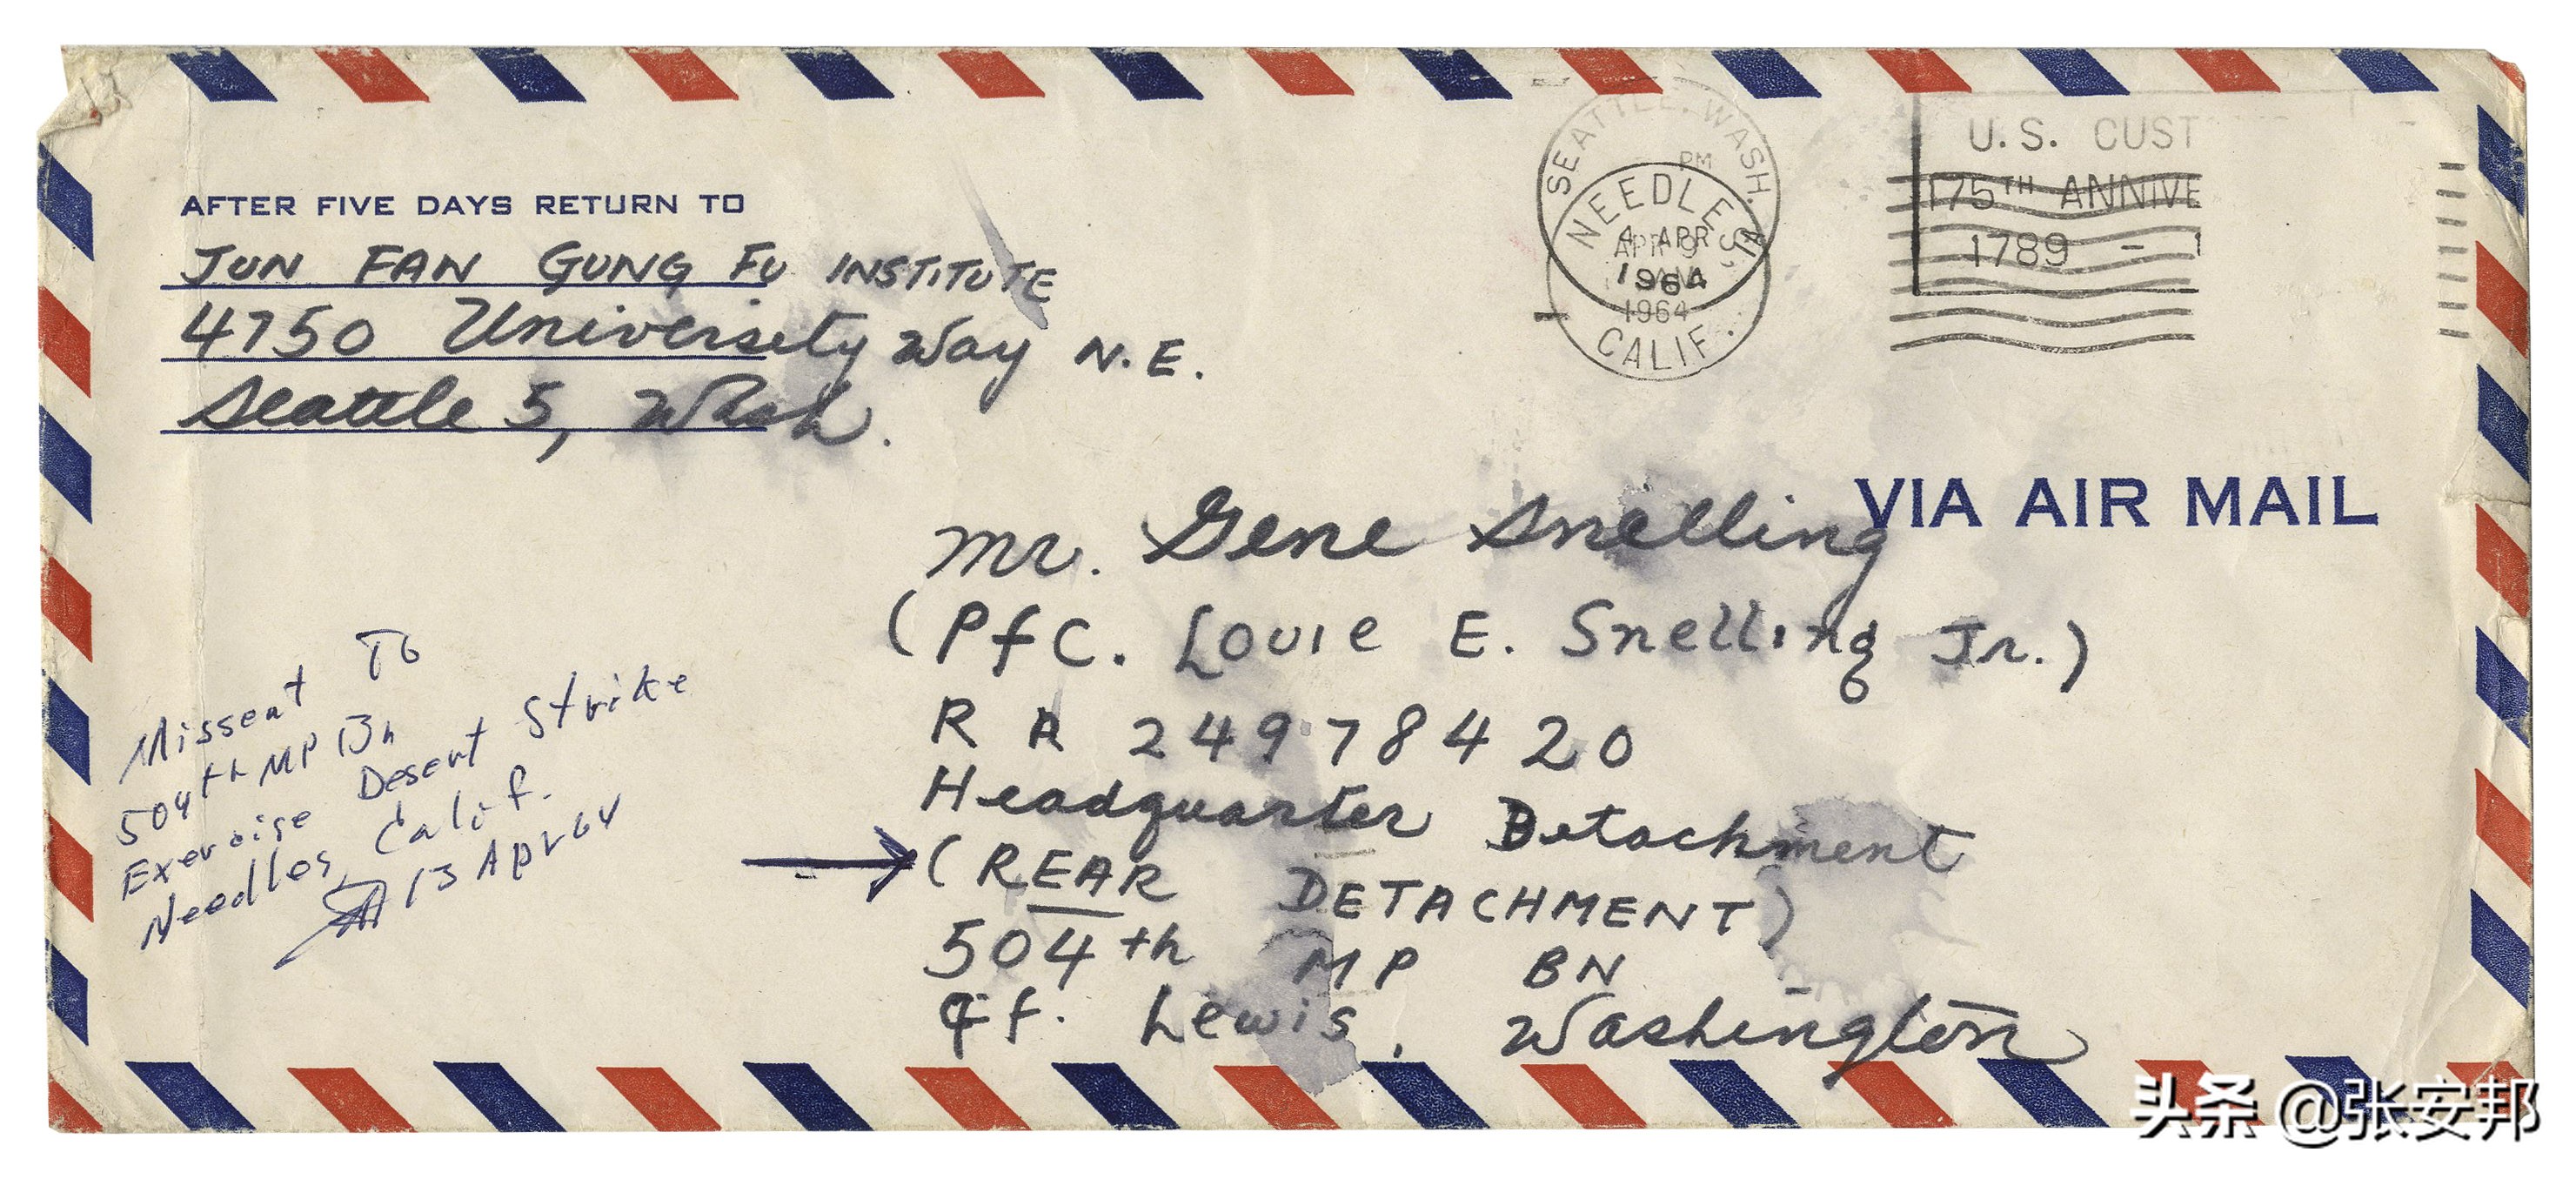 AFTER FIVE DAYS RETURN TO
JUN FAN GUNG FU INSTITUTE
4750 University Way N.E.
Seattle 5, Wash.
SEATTLE, WASH.
PM
NEEDLES
APR
1964
1964
CALIF.
U.S. CUST
175TH ANNIVE
1789 - 1
VIA AIR MAIL
Mr. Gene Snelling
(Pfc. Louie E. Snelling Jr.)
RA 24978420
Headquarter Detachment
(REAR DETACHMENT)
504th MP BN
Ft. Lewis, Washington
Missent To
504th MP Bn
Exercise Desert Strike
Needles, Calif.
13 Apr 64
头条 @张安邦